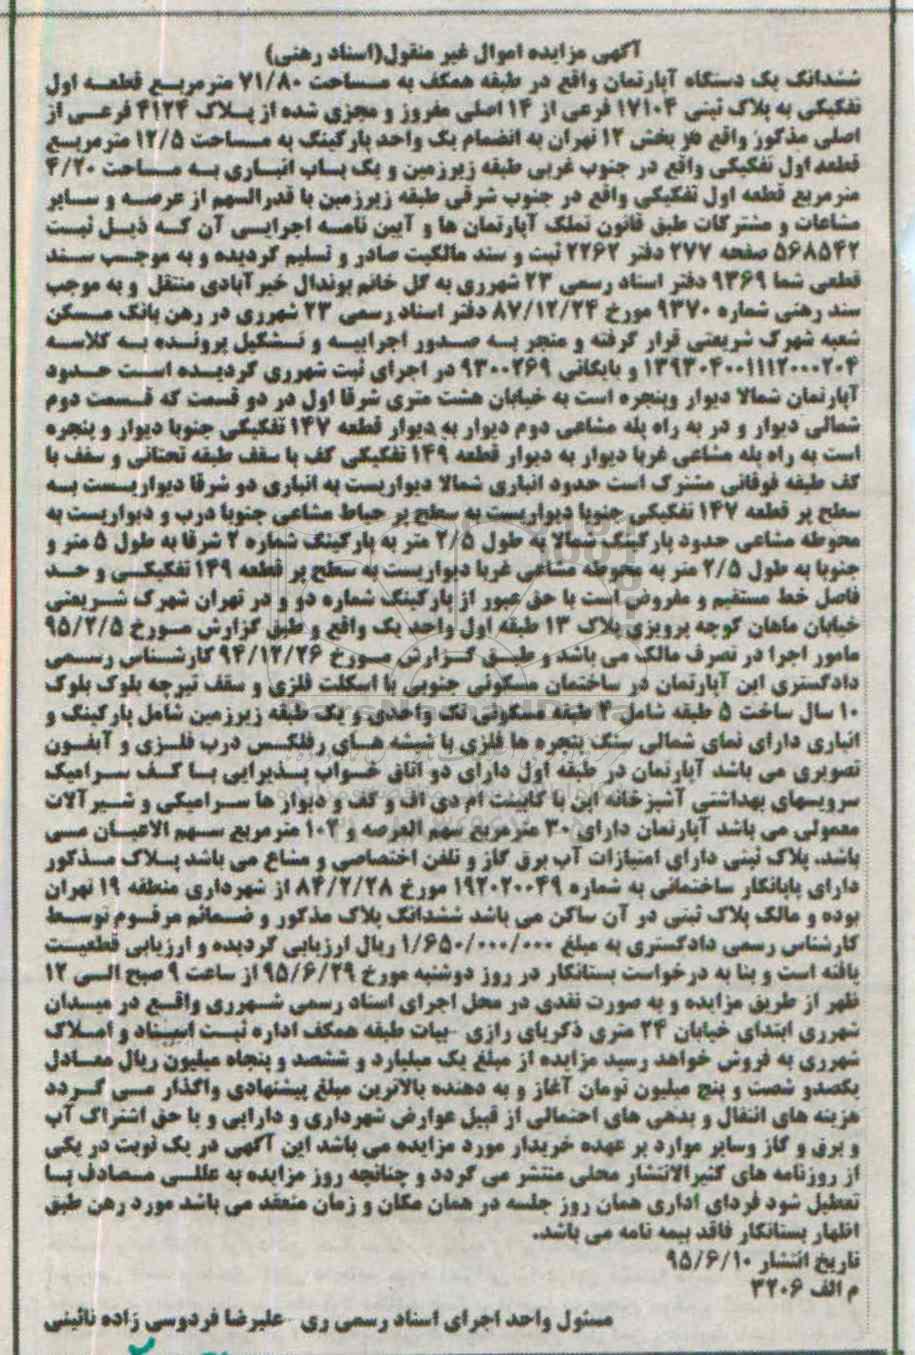 آگهی مزایده اموال غیر منقول(اسناد رهنی)
ششدانگ یک دستگاه آپارتمان واقع در طبقه همکف به مساحت ۷۱/۸۰ مترمربع قطعه اول
تفکیکی به پلاک ثبتی ۱۷۱۰۴ فرعی از ۱۴ اصلی مفروز و مجزی شده از پلاک ۴۱۲۴ فرعی از
اصلی مذکور واقع در بخش ۱۲ تهران به انضمام یک واحد پارکینگ به مساحت ۱۲/۵ مترمربع
قطعه اول تفکیکی واقع در جنوب غربی طبقه زیرزمین و یک باب انباری به مساحت ۴/۲۰
مترمربع قطعه اول تفکیکی واقع در جنوب شرقی طبقه زیرزمین با قدرالسهم از عرصه و سایر
مشاعات و مشترکات طبق قانون تملک آپارتمان ها و آیین نامه اجرایی آن که ذیل ثبت
۵۶۸۵۴۲ صفحه ۲۷۷ دفتر ۲۲۶۲ ثبت و سند مالکیت صادر و تسلیم گردیده و به موجب سند
قطعی شما ۹۳۶۹ دفتر اسناد رسمی ۲۳ شهرری به گل خانم بوندال خیرآبادی منتقل و به موجب
سند رهنی شماره ۹۳۷۰ مورخ ۸۷/۱۲/۲۴ دفتر اسناد رسمی ۲۳ شهرری در رهن بانک مسکن
شعبه شهرک شریعتی قرار گرفته و منجر به صدور اجراییه و تشکیل پرونده به کلاسه
۱۳۹۳۰۴۰۰۱۱۱۲۰۰۰۲۰۴ و بایگانی ۹۳۰۰۲۶۹ در اجرای ثبت شهرری گردیده است حدود
آپارتمان شمالا دیوار وپنجره است به خیابان هشت متری شرقا اول در دو قسمت که قسمت دوم
شمالی دیوار و در به راه پله مشاعی دوم دیوار به دیوار قطعه ۱۴۷ تفکیکی جنوبا دیوار و پنجره
است به راه پله مشاعی غربا دیوار به دیوار قطعه ۱۴۹ تفکیکی کف با سقف طبقه تحتانی و سقف با
کف طبقه فوقانی مشترک است حدود انباری شمالا دیواریست به انباری دو شرقا دیواریست به
سطح پر قطعه ۱۴۷ تفکیکی جنوبا دیواریست به سطح پر حیاط مشاعی جنوبا درب و دیواریست به
محوطه مشاعی حدود پارکینگ شمالا به طول ۲/۵ متر به پارکینگ شماره ۲ شرقا به طول ۵ متر و
جنوبا به طول ۲/۵ متر به محوطه مشاعی غربا دیواریست به سطح پر قطعه ۱۴۹ تفکیکی و حد
فاصل خط مستقیم و مفروض است با حق عبور از پارکینگ شماره دو و در تهران شهرک شریعتی
خیابان ماهان کوچه پرویزی پلاک ۱۳ طبقه اول واحد یک واقع و طبق گزارش مورخ ۹۵/۲/۵
مامور اجرا در تصرف مالک می باشد و طبق گزارش مورخ ۹۴/۱۲/۲۶ کارشناس رسمی
دادگستری این آپارتمان در ساختمان مسکونی جنوبی با اسکلت فلزی و سقف تیرچه بلوک بلوک
۱۰ سال ساخت ۵ طبقه شامل ۴ طبقه مسکونی تک واحدی و یک طبقه زیرزمین شامل پارکینگ و
انباری دارای نمای شمالی سنگ پنجره ها فلزی با شیشه های رفلکس درب فلزی و آیفون
تصویری می باشد آپارتمان در طبقه اول دارای دو اتاق خواب پذیرایی با کف سرامیک
سرویسهای بهداشتی آشپزخانه اپن با کابینت ام دی اف و کف و دیوار ها سرامیکی و شیرآلات
معمولی می باشد آپارتمان دارای ۳۰ مترمربع سهم العرصه و ۱۰۴ مترمربع سهم الاعیان می
باشد. پلاک ثبتی دارای امتیازات آب برق گاز و تلفن اختصاصی و مشاع می باشد پلاک مذکور
دارای پایانکار ساختمانی به شماره ۱۹۲۰۲۰۰۴۹ مورخ ۸۴/۲/۲۸ از شهرداری منطقه ۱۹ تهران
بوده و مالک پلاک ثبتی در آن ساکن می باشد ششدانگ پلاک مذکور و ضمائم مرقوم توسط
کارشناس رسمی دادگستری به مبلغ ۱/۶۵۰/۰۰۰/۰۰۰ ریال ارزیابی گردیده و ارزیابی قطعیت
یافته است و بنا به درخواست بستانکار در روز دوشنبه مورخ ۹۵/۶/۲۹ از ساعت ۹ صبح الی ۱۲
ظهر از طریق مزایده و به صورت نقدی در محل اجرای اسناد رسمی شهرری واقع در میدان
شهرری ابتدای خیابان ۲۴ متری ذکریای رازی -بیات طبقه همکف اداره ثبت اسناد و املاک
شهرری به فروش خواهد رسید مزایده از مبلغ یک میلیارد و ششصد و پنجاه میلیون ریال معادل
یکصدو شصت و پنج میلیون تومان آغاز و به دهنده بالاترین مبلغ پیشنهادی واگذار می گردد
هزینه های انتقال و بدهی های احتمالی از قبیل عوارض شهرداری و دارایی و با حق اشتراک آب
و برق و گاز وسایر موارد بر عهده خریدار مورد مزایده می باشد این آگهی در یک نوبت در یکی
از روزنامه های کثیرالانتشار محلی منتشر می گردد و چنانچه روز مزایده به عللی مصادف با
تعطیل شود فردای اداری همان روز جلسه در همان مکان و زمان منعقد می باشد مورد رهن طبق
اظهار بستانکار فاقد بیمه نامه می باشد.
تاریخ انتشار ۹۵/۶/۱۰
م الف ۳۲۰۶
مسئول واحد اجرای اسناد رسمی ری- علیرضا فردوسی زاده نائینی